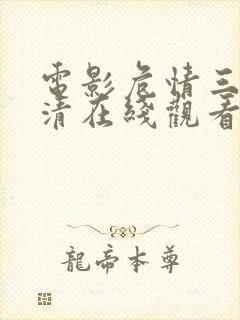 電影危情三
清在綫觀看
龍帝本尊